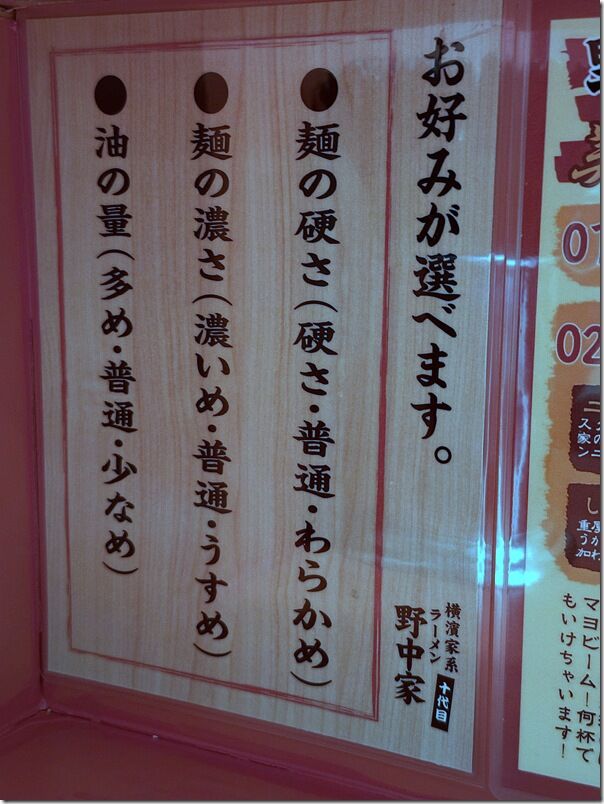 お好みが選べます。
●麺の硬さ（硬さ・普通・わらかめ）
●麺の濃さ（濃いめ・普通・うすめ）
●油の量（多め・普通・少なめ）
横濱家系
ラーメン
野中家
十代目
01
02
マヨビーム！何杯で
もいけちゃいます！